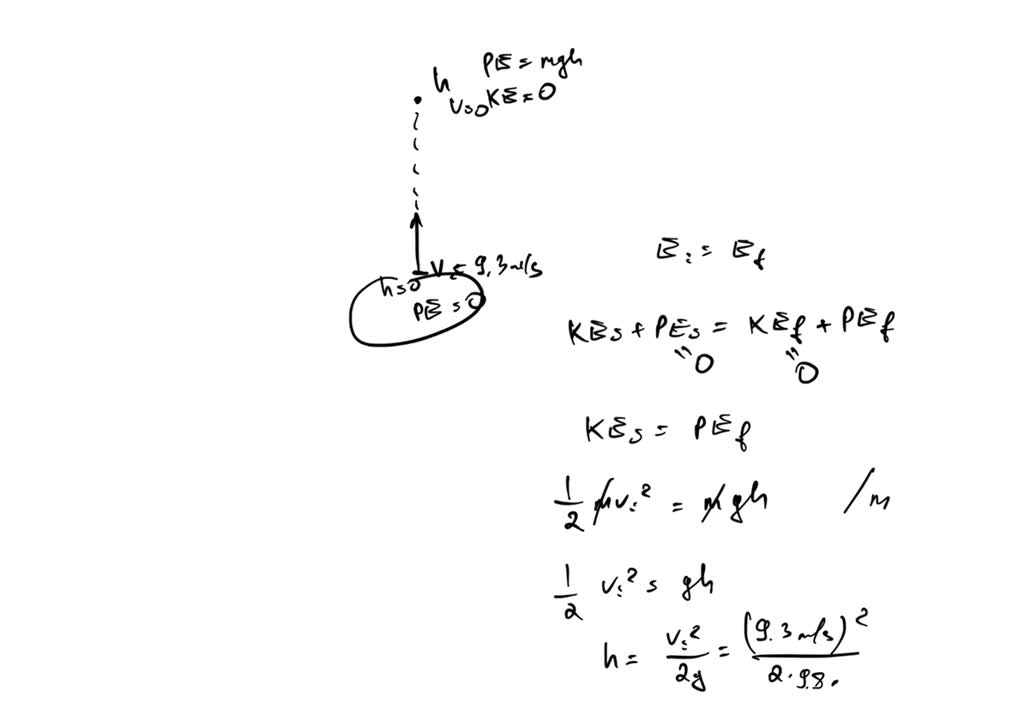 h PE = mgh
v=0 KE = 0
h=0 Vi = 9.3 m/s
PE = 0
Ei = Ef
KEi + PEi = KEf + PEf
"0 "0
KEi = PEf
1/2 mvi² = mgh /m
1/2 vi² = gh
h = vi²/2g = (9.3 m/s)²/2·9.8·